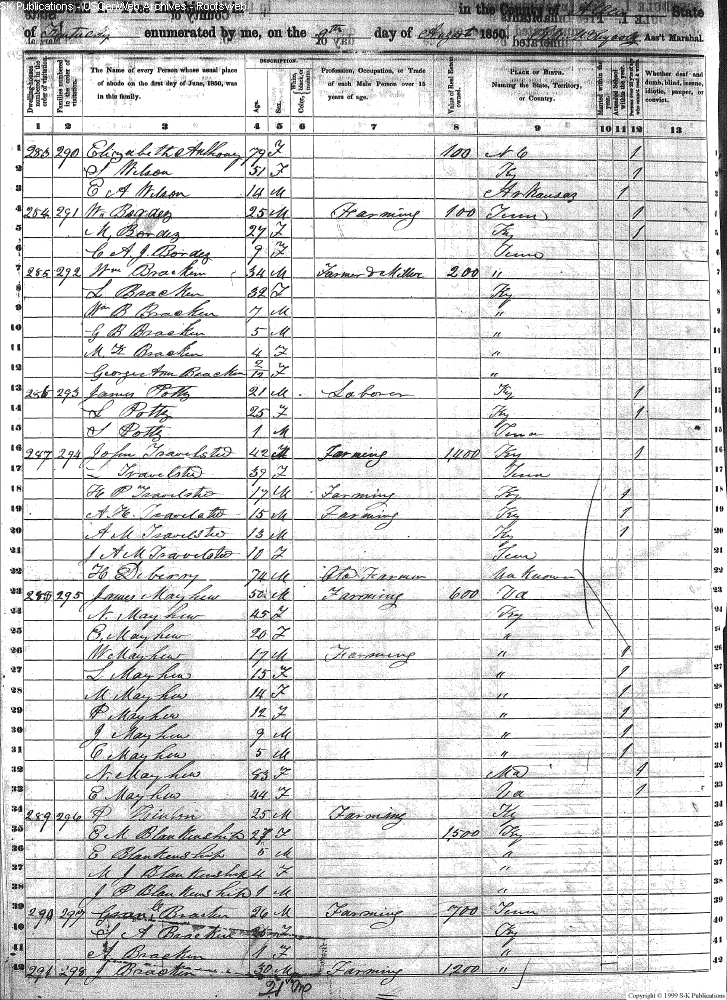 S-K Publications - USGenWeb Archives - Rootsweb
in the County of State
of Kentucky enumerated by me, on the 9th day of August 1850. Ass't Marshal.
Dwelling-houses numbered in the order of visitation.
Families numbered in the order of visitation.
The Name of every Person whose usual place of abode on the first day of June, 1850, was in this family.
DESCRIPTION.
Age.
Sex.
Color, White, black, or mulatto.
Profession, Occupation, or Trade of each Male Person over 15 years of age.
Value of Real Estate owned.
PLACE OF BIRTH. Naming the State, Territory, or Country.
Married within the year.
Whether deaf and dumb, blind, insane, idiotic, pauper, or convict.
1 2 3 4 5 6 7 8 9 10 11 12 13
1 283 290 Elizabeth Anthony 79 F 100 N C 1
2 S Wilson 51 F Ky 1
3 E A Wilson 14 M Arkansas 1
4 284 291 Wm Bordez 25 M Farming 100 Tenn 1
5 M Bordez 27 F Ky 1
6 C A J Bordez 9 F Tenn
7 285 292 Wm Bracken 34 M Farmer & Miller 200 "
8 L Bracken 32 F Ky
9 Wm B Bracken 7 M "
10 G B Bracken 5 M "
11 M F Bracken 4 F "
12 Georgie Ann Bracken 2/12 F "
13 286 293 James Potts 21 M Laborer Ky 1
14 L Potts 25 F Ky 1
15 S Potts 1 M Tenn
16 287 294 John Travelsted 42 M Farming 1,400 Ky 1
17 Travelsted 39 F Tenn
18 H P Travelsted 17 M Farming Ky 1
19 A. H. Travelsted 15 M Farming Ky 1
20 A M Travelsted 13 M Ky 1
21 J A M Travelsted 10 F Tenn
22 H Deberry 74 M Old Farmer Unknown
23 288 295 James Mayhew 50 M Farming 600 Va
24 N. Mayhew 45 F Ky
25 E. Mayhew 20 F "
26 W Mayhew 17 M Farming " 1
27 L Mayhew 15 F " 1
28 M Mayhew 14 F " 1
29 P Mayhew 12 F " 1
30 J Mayhew 9 M " 1
31 C Mayhew 5 M " 1
32 N. Mayhew 83 F Md 1
33 E Mayhew 44 F Va 1
34 289 296 P Vinson 25 M Farming Ky
35 E M Blankenship 27 F 1500 Ky
36 E Blankenship 5 M "
37 M J Blankenship 4 F "
38 J P Blankenship 1 M "
39 290 297 Bracken 26 M Farming 700 Tenn
40 S A Bracken F Ky
41 Bracken 1 F "
42 291 298 J Bracken 30 M Farming 1200 "
Copyright © 1999 S-K Publications